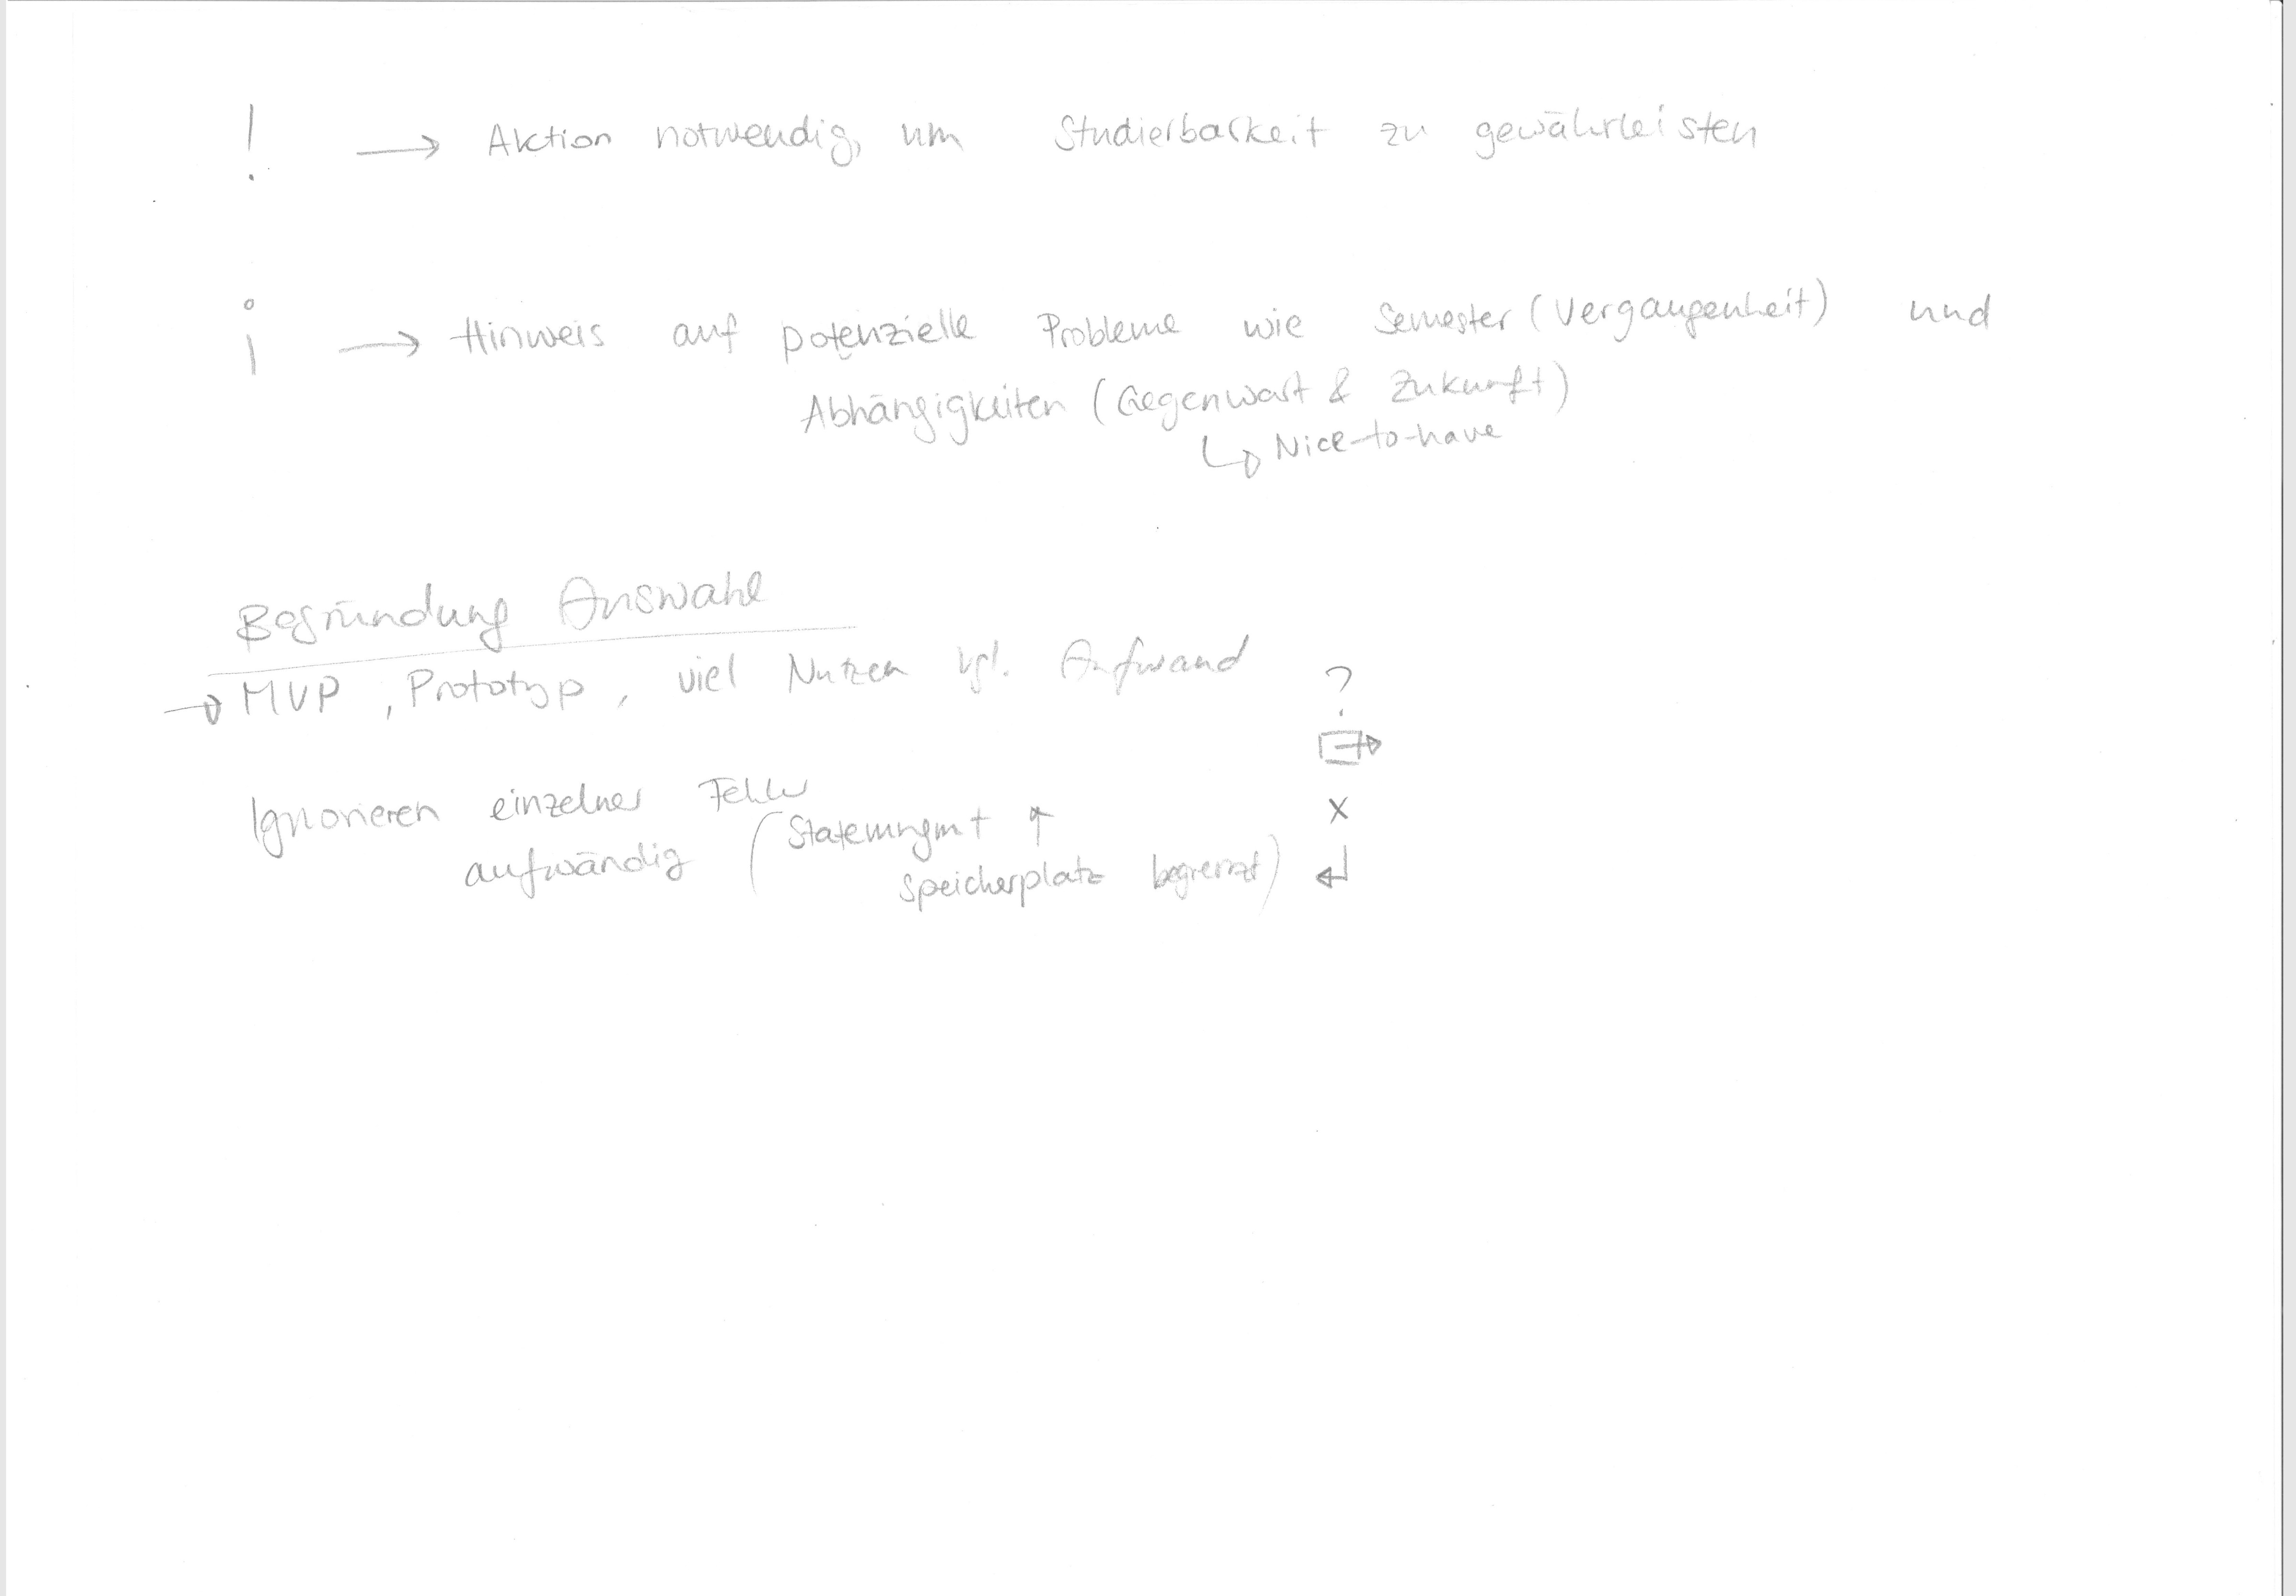 ! → Aktion notwendig, um Studierbarkeit zu gewährleisten
i → Hinweis auf potenzielle Probleme wie Semester (Vergangenheit) und
Abhängigkeiten (Gegenwart & Zukunft)
↳ Nice-to-have
Begründung Auswahl
→ MVP, Prototyp, viel Nutzen vgl. Aufwand
?
Ignorieren einzelner Fehler
x
aufwändig (Statemngmt ↑
Speicherplatz begrenzt)
↵